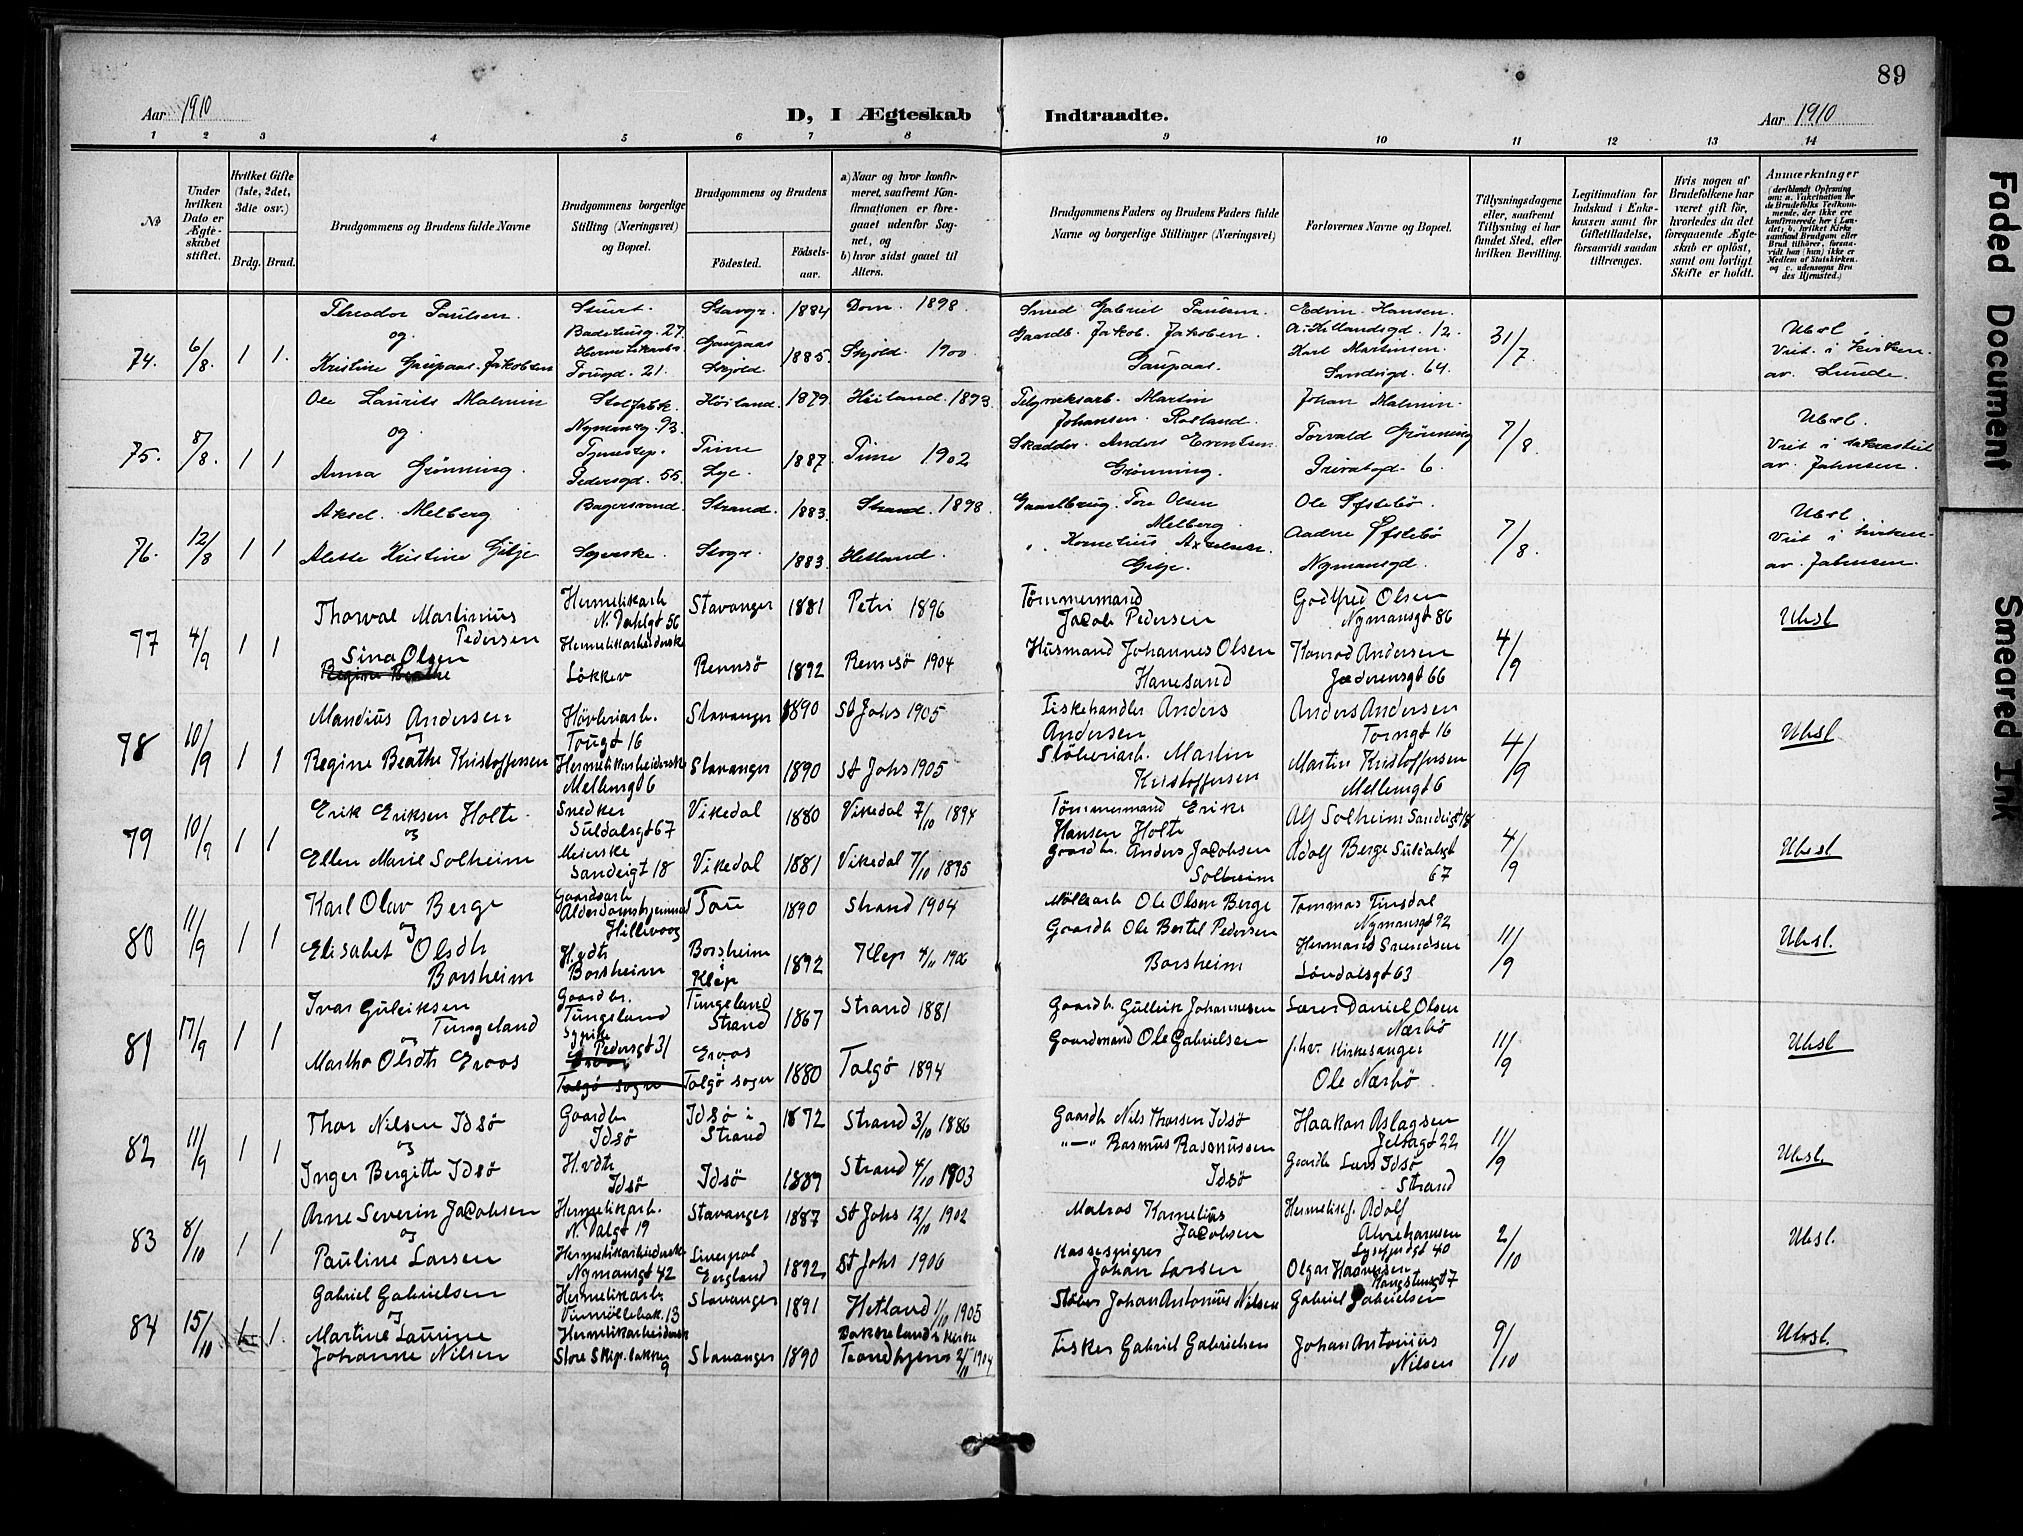 89
Aar 1910
D, I Ægteskab Indtraadte.
Aar 1910
1 2 3 4 5 6 7 8 9 10 11 12 13 14
№
Under hvilken Dato er Ægteskabet stiftet.
Hvilket Gifte (1ste, 2det, 3die osv.)
Brdg. Brud.
Brudgommens og Brudens fulde Navne
Brudgommens borgerlige Stilling (Næringsvei) og Bopæl.
Brudgommens og Brudens
Fødested.
Fødselsaar.
a) Naar og hvor konfirmeret, saafremt Konfirmationen er foregaaet udenfor Sognet, og
b) hvor sidst gaaet til Alters.
Brudgommens Faders og Brudens Faders fulde Navne og borgerlige Stillinger (Næringsvei)
Forlovernes Navne og Bopæl.
Tillysningsdagene eller, saafremt Tillysning ei har fundet Sted, efter hvilken Bevilling.
Legitimation for Indskud i Enkekassen samt for Giftetilladelse, forsaavidt saadan tiltrænges.
Hvis nogen af Brudefolkene har været gift før, hvorledes da det foregaaende Ægteskab er opløst, samt om lovligt Skifte er holdt.
Anmærkninger
74. 6/8. 1 1.
Theodor Paulsen
og
Kristine Gaupaas Jakobsen
Stuert.
Badehusg. 27.
Torvgd. 21.
Stavgr. 1884 Dom. 1898.
Gaupaas
Skjold 1885. Skjold. 1900
Smed Gabriel Paulsen.
Gaardb. Jakob Jakobsen
Gaupaas.
Edvin Hansen.
Karl Martinsen.
Sandvigd. 64.
31/7
Ubsl.
Viet i kirken
av Lunde.
75. 8/8. 1 1
Ole Laurits Malmin
og
Anna Grønning.
Nymansg. 93.
Tjenestep.
Pedersgd. 55.
Høiland. 1879 Høiland. 1893.
Time
Lye. 1887. Time 1902
Martin
Johansen Rosland.
Skrædder. Anders Evertsen
Grønning.
Johan Malmin.
Torvald Grønning
Privatgd. 6.
7/8
Ubsl.
Viet i sakristiet
av Jahnsen.
76. 12/8 1 1
Aksel Melberg
Alette Kristine Gilje
Bagersvend. Strand. 1883. Strand. 1898.
Syerske. Stvgr. 1883 Hetland.
Gaardbrug. Tore Olsen
Melberg
Kornelius Axelsen.
Gilje.
Ole Øfstebø.
Aadne Øfstebø
Nymansgd.
7/8.
Ubsl.
Viet i kirken
av Jahnsen.
77 4/9 1 1
Thorval Martinius
Pedersen
Sina Olsen
Regine Beathe
Hermetikarb
N. Dahlgt 56
Hermetikarbeiderske
Løkkev
Stavanger 1881 Petri 1896
Rennsö 1892 Rennsö 1904
Tømmermand
Jacob Pedersen
Husmand Johannes Olsen
Hanesand
Godtfred Olsen
Nymansgt 86
Konrad Andersen
Jæderensgt 66
4/9
Ubsl
78 10/9 1 1
Mandius Andersen
og
Regine Beathe Kristoffersen
Høvleriarb.
Tougt 16
Hermetikarbeiderske
Mellemgt 6
Stavanger 1890 St Johs 1905
Stavanger 1890 St Johs 1905
Fiskehandler Anders
Andersen
Støberiarb. Martin
Kristoffersen
Anders Andersen
Torngt 16
Martin Kristoffersen
Mellemgt 6
4/9
Ubsl
79 10/9 1 1
Erik Eriksen Holte.
og
Ellen Marie Solheim
Snedker
Suldalsgt 67
Meierske
Sandvigt 18
Vikedal 1880 Vikedal 7/10 1894
Vikedal 1881 Vikedal 7/10 1895
Tømmermand Erike
Hansen Holte
Gaardbr. Anders Jacobsen
Solheim
Alf Solheim Sandvigt 18
Adolf Berge Suldalsgt
67
4/9
Ubsl
80 11/9 1 1
Karl Olav Berge
og
Elisabet Olsdtr
Borsheim
Gaardsarb
Alderdomshjemmet
Hillevaag
H.vdtr
Borsheim
Tou 1890 Strand 1904
Borsheim
i
Klep 1892 Klep 4/11 1906
Møllearb Ole Olsen Berge
Gaardb Ole Bertel Pedersen
Borsheim
Tommas Tinsdal
Nymansgt 92
Hermand Svendsen
Løvdalsgt 63
11/9
Ubsl.
81 17/9 1 1
Ivar Gulriksen
Tungeland
og
Martha Olsdtr Eroos
Gaardbr.
Tungeland
Sypike
Pedersgt 31
Talgö sogn
Tungeland
Strand 1867 Strand 1881
Eroos
i
Talgö sogn 1880 Talgø 1894
Gaardb. Gullrik Johannesen
Gaardmand Ole Gabrielsen
Lærer Daniel Olsen
Nærbø
f.hv. Kirkesanger
Ole Nærbø
11/9
Ubsl
82 11/9 1 1
Thor Nilsen Idsø
og
Inger Bergitte Idsø
Gaardbr
Idsø
H.vdtr
Idsø
Idsø i
Strand 1872 Strand 3/10 1886
Idsø 1889 Strand 4/10 1903
Gaardb Nils Thorsen Idsø
"—" Rasmus Rasmussen
Idsø
Haakon Aslagsen
Jelsagt 22
Gaardb Lars Idsø
Strand
11/9
Ubsl.
83 8/10 1 1
Arne Severin Jacobsen
og
Pauline Larsen
Hermetikarb.
N. Dalgt 19
Hermetikarbeiderske
Nymansgt 42
Stavanger 1887 St Johs 12/10 1902
Liverpol
England 1892 St Johs 1906
Matros Kornelius
Jacobsen
Kassespigrer
Johan Larsen
Hermetikf. Adolf
Lysefjordgt 40
Olgar Haaversen
Kongstensgt 7
2/10
Ubsl.
84 15/10 1 1.
Gabriel Gabrielsen
og
Martine Laurine
Johanne Nilsen
Hermetikarb
Vinmøllebak. 13
Hermetikarbeidersk
Store Skip. bakken
9
Stavanger 1891 Hetland 1/10 1905
Stavanger 1890 Bakkelands kirke
Trondhjem 2/10 1904
Støber Johan Antonius Nilsen
Fisker Gabriel Gabrielsen
Gabriel Gabrielsen
Johan Antonius
Nilsen
9/10
Ubsl.
Faded Document
Smeared Ink